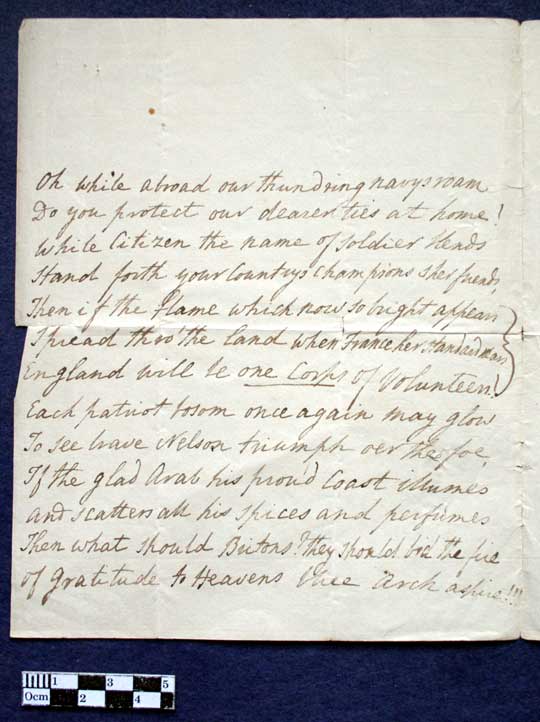 Oh while abroad our thundring navys roam
Do you protect our dearer ties at home!
While Citizen the name of Soldier blends
Stand forth your Countrys Champions & her friends,
Then if the flame which now so bright appears
Spread thro the land when France her Standard rears
England will be one Corps of Volunteers!
Each patriot bosom once again may glow
To see brave Nelson triumph oer the foe,
If the glad Arab his proud Coast illumes
and scatters all his spices and perfumes
Then what should Britons? they should bid the fire
of Gratitude to Heavens blue Arch aspire!!!
0cm 1 2 3 4 5